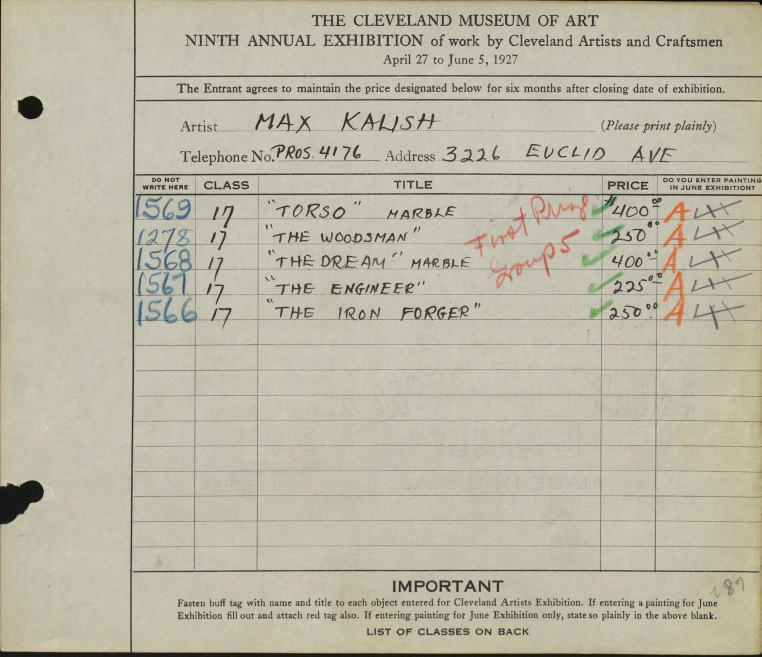 THE CLEVELAND MUSEUM OF ART
NINTH ANNUAL EXHIBITION of work by Cleveland Artists and Craftsmen
April 27 to June 5, 1927
The Entrant agrees to maintain the price designated below for six months after closing date of exhibition.
Artist MAX KALISH (Please print plainly)
Telephone No. PROS. 4176 Address 3226 EUCLID AVE
DO NOT WRITE HERE CLASS TITLE PRICE DO YOU ENTER PAINTING IN JUNE EXHIBITION?
1569 17 "TORSO" MARBLE $400.00 A
1278 17 "THE WOODSMAN" 250.00 A
1568 17 "THE DREAM" MARBLE 400.00 A
1567 17 "THE ENGINEER" 225.00 A
1566 17 "THE IRON FORGER" 250.00 A
First Prize
Group 5
IMPORTANT
287
Fasten buff tag with name and title to each object entered for Cleveland Artists Exhibition. If entering a painting for June
Exhibition fill out and attach red tag also. If entering painting for June Exhibition only, state so plainly in the above blank.
LIST OF CLASSES ON BACK